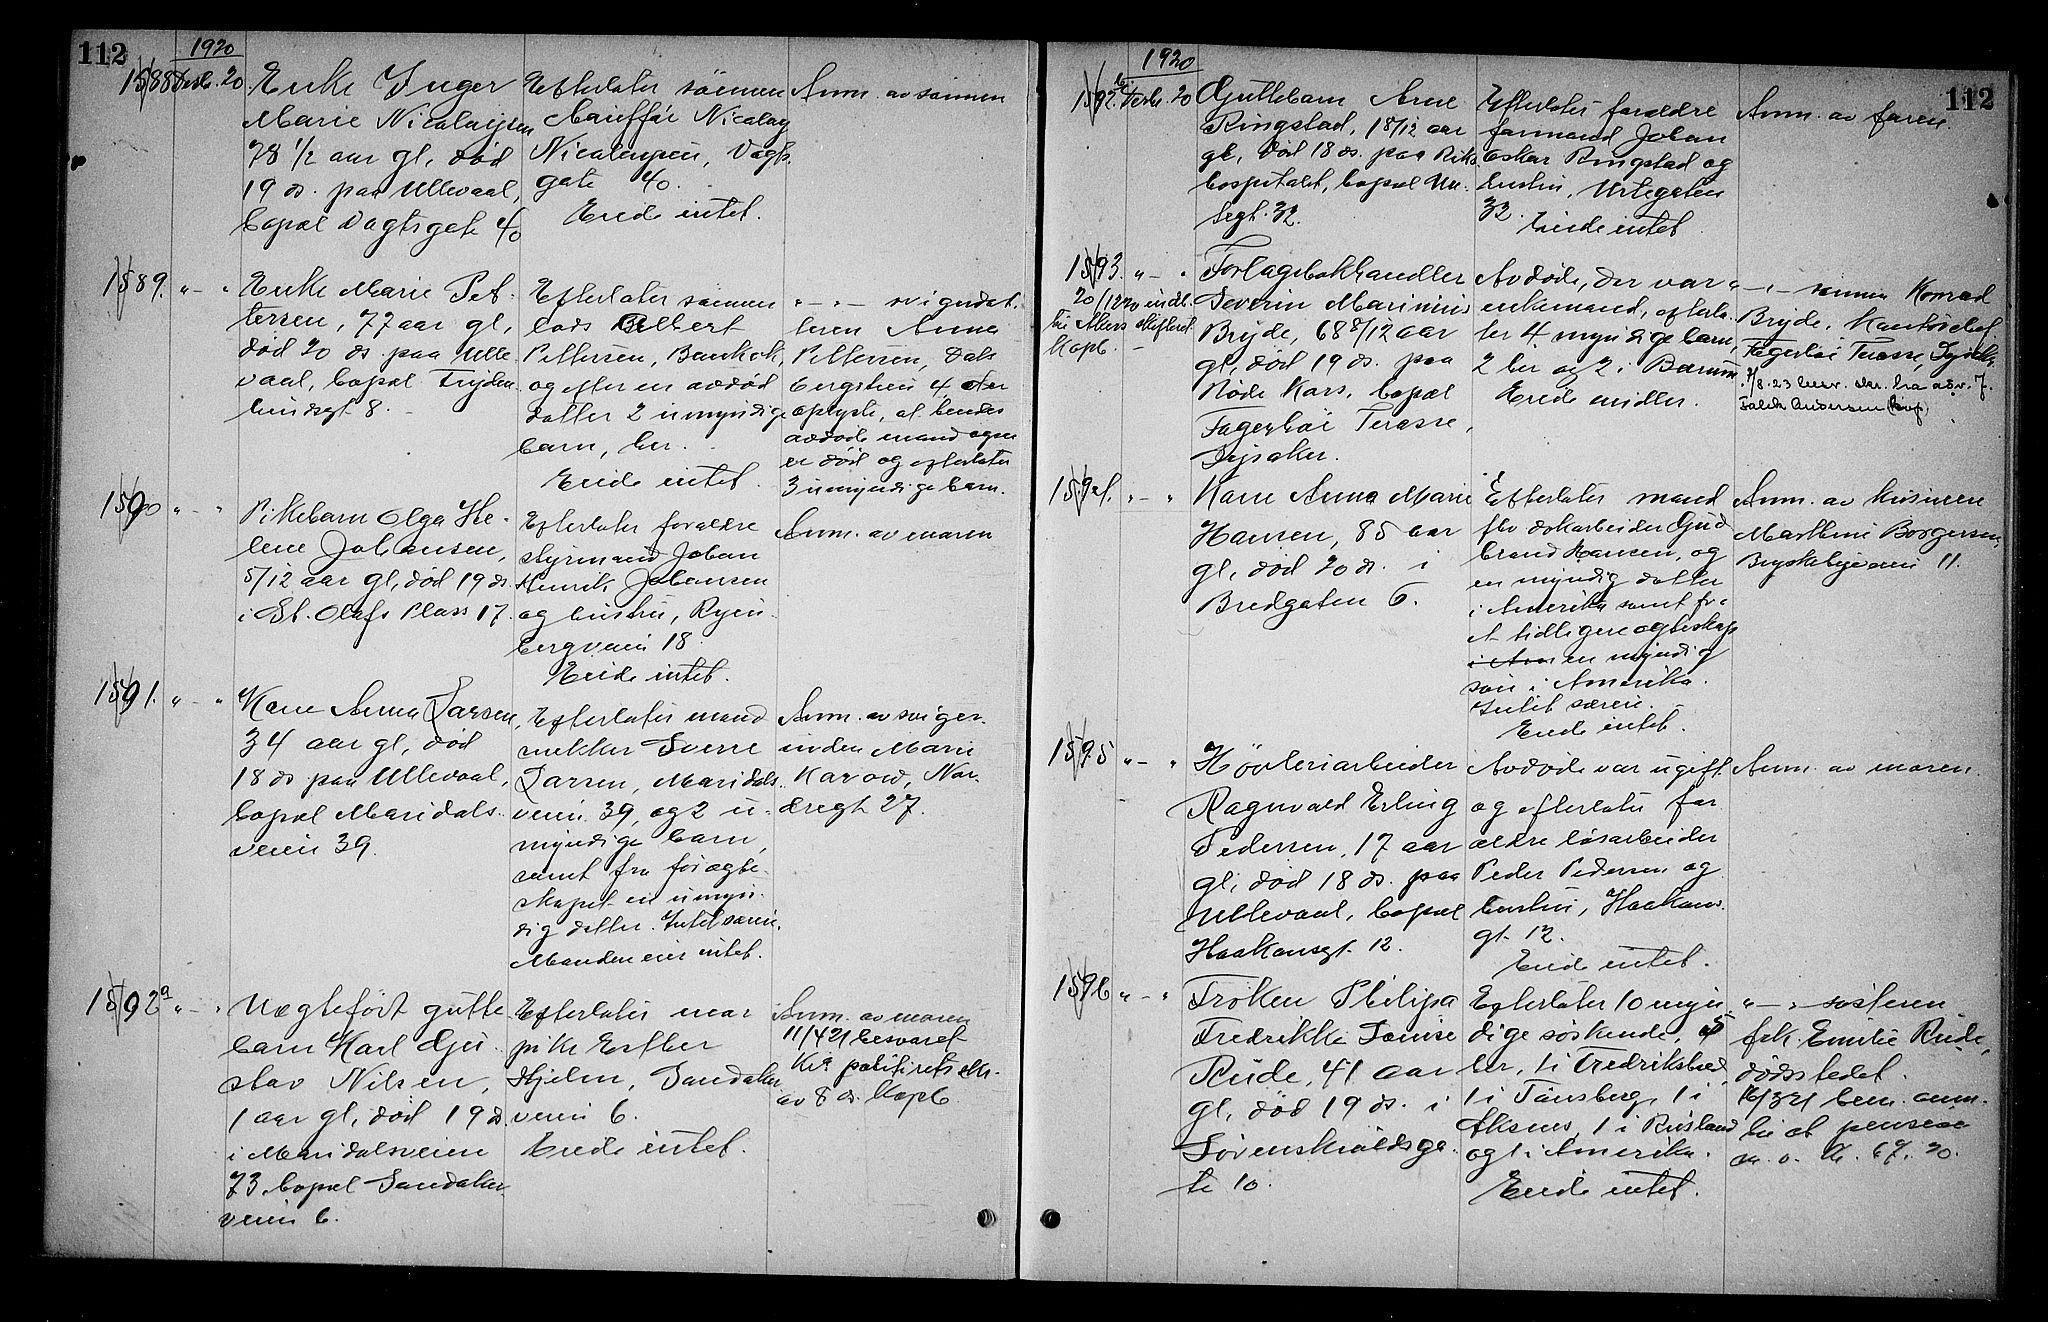 112
1920
1588 Desb. 20.
Enke Inger
Marie Nicolaysen
78 1/2 aar gl, død
19 ds. paa Ullevaal,
bopæl Vogtsgate 40
Efterlater sønnen
Nicolay
Nicolaysen, Vogts
gate 40.
Eiede intet.
Anm. av sønnen
1589. " - "
Enke Marie Pet-
tersen, 77 aar gl,
død 20 ds. paa Ulle
vaal, bopæl Fryden
lundsgt 8.
Efterlater sønnen
lods Albert
Pettersen, Bankok,
og efter en avdød
datter 2 umyndige
barn, her.
Eiede intet.
" - " - svigerdat.
teren Anna
Pettersen, Dals
bergstien 4 der
oplyste, at hendes
avdøde mand ogsaa
er død og efterlater
3 umyndige barn.
1590 " - "
Pikebarn Olga He-
lene Johansen,
5/12 aar gl, død 19 ds
i St. Olafs Plass 17.
Efterlater forældre
styrmand Johan
Henrik Johansen
og hustru, Ryen
bergveien 18.
Eiede intet.
Anm. av moren
1591. " - "
Kone Anna Larsen,
34 aar gl, død
18 ds paa Ullevaal,
bopæl Maridals
veien 39.
Efterlater mand
snekker Sverre
Larsen, Maridals.
veien 39, og 2 u-
myndige barn,
samt fra før egte-
skapet en umyn-
dig datter. Intet særeie.
Manden eier intet.
Anm. av sviger.
inden Marie
Karow, Nor.
dregt 27.
1592a " - "
Uegtefødt gutte
barn Karl Gu
stav Nilsen,
1 aar gl, død 19 ds.
i Maridalsveien
73 bopæl Sandaker
veien 6.
Efterlater mor
pike Esther
Hjelm, Sandaker
veien 6.
Eiede intet.
Anm. av moren
11/4 21 besvaret
Kra politirets skr.
av 8 ds. Kopb.
1920
112
1592.b Desb. 20
Guttebarn Arne
Ringstad, 1 8/12 aar
gl, død 18 ds. paa Riks
hospitalet, bopæl Ur.
tegt. 32.
Efterlater forældre
formand Johan
Oskar Ringstad og
hustru, Urtegaten
32. Eiede intet.
Anm. av faren.
1593. " - "
20/12 20 indb.
til Akers skifteret.
Kopb. -
Forlagsbokhandler
Severin Marinius
Bryde, 68 8/12 aar
gl, død 19 ds. paa
Røde Kors, bopæl
Fagerhøi Terasse,
Lysaker.
Avdøde, der var
enkemand, efterla.
ter 4 myndige barn,
2 her og 2 i Bærum.
Eiede midler.
" - " - sønnen Konrad
Bryde, Kontorchef
Fagerhøi Terasse, Lysaker.
7/8.23 besv. skr. fra adv. J.
Falck Andersen (Kopb)
1594. " - "
Kone Anna Marie
Hansen, 85 aar
gl, død 20 ds. i
Bredgaten 6.
Efterlater mand
fhv dokarbeider Gud
brand Hansen, og
en myndig datter
i Amerika samt fra
et tidligere egteskap
i Am en myndig
søn i Amerika.
Intet særeie.
Eiede intet.
Anm. av kusinen
Marthine Borgersen,
Bryskebyveien 11.
1595 " - "
Høvleriarbeider
Ragnvald Erling
Pedersen, 17 aar
gl, død 18 ds. paa
Ullevaal, bopæl
Haakonsgt. 12.
Avdøde var ugift
og efterlater for
ældre løsarbeider
Peder Pedersen og
hustru, Haakons
gt. 12.
Eiede intet.
Anm. av moren.
1596 " - "
Frøken Philipa
Fredrikke Louise
Rude, 41 aar
gl, død 19 ds. i
Sørenskiøldsga.
te 10.
Efterlater 10 myn
dige søskende, 5
her, 1 i Fredrikstad,
1 i Tønsberg, 1 i
Aksnes, 1 i Rusland
og 1 i Amerika.
Eiede intet.
" - " søsteren
frk. Emilie Rude,
dødsstedet.
16/3 21 bem. anm.
til at pension
m. v. Kr. 67.20.